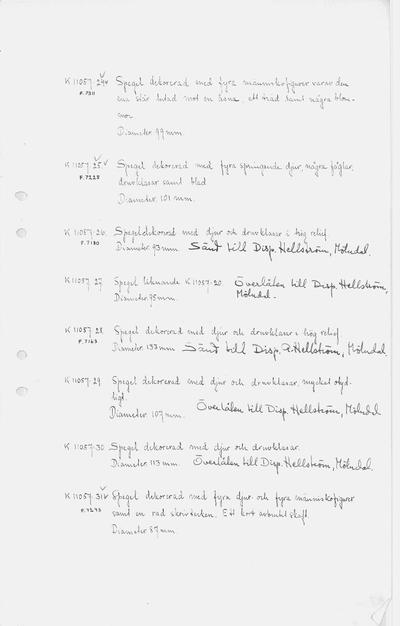 K 11057:24 Spegel dekorerad med fyra människofigurer varav den
F.7211 ena står lutad mot en åsna, ett träd samt några blom-
mor.
Diameter 99 mm.
K 11057:25 Spegel dekorerad med fyra springande djur, några fåglar,
F.7228 druvklasar samt blad
Diameter 101 mm.
K 11057:26 Spegel dekorerad med djur och druvklasar i hög relief.
F.7180 Diameter 93 mm. Sänd till Disp. Hellström, Mölndal.
K 11057:27 Spegel liknande K 11057:20. Överlåten till Disp. Hellström,
Diameter 95 mm. Mölndal.
K 11057:28 Spegel dekorerad med djur och druvklasar i hög relief.
F.7163 Diameter 133 mm Sänd till Disp. R. Hellström, Mölndal.
K 11057:29 Spegel dekorerad med djur och druvklasar, mycket otyd-
ligt.
Diameter 107 mm. Överlåten till Disp. Hellström, Mölndal
K 11057:30 Spegel dekorerad med djur och druvklasar.
Diameter 113 mm. Överlåten till Disp. Hellström, Mölndal.
K 11057:31 Spegel dekorerad med fyra djur- och fyra människofigurer
F.7273 samt en rad skrivtecken. Ett kort avbrutet skaft.
Diameter 87 mm.